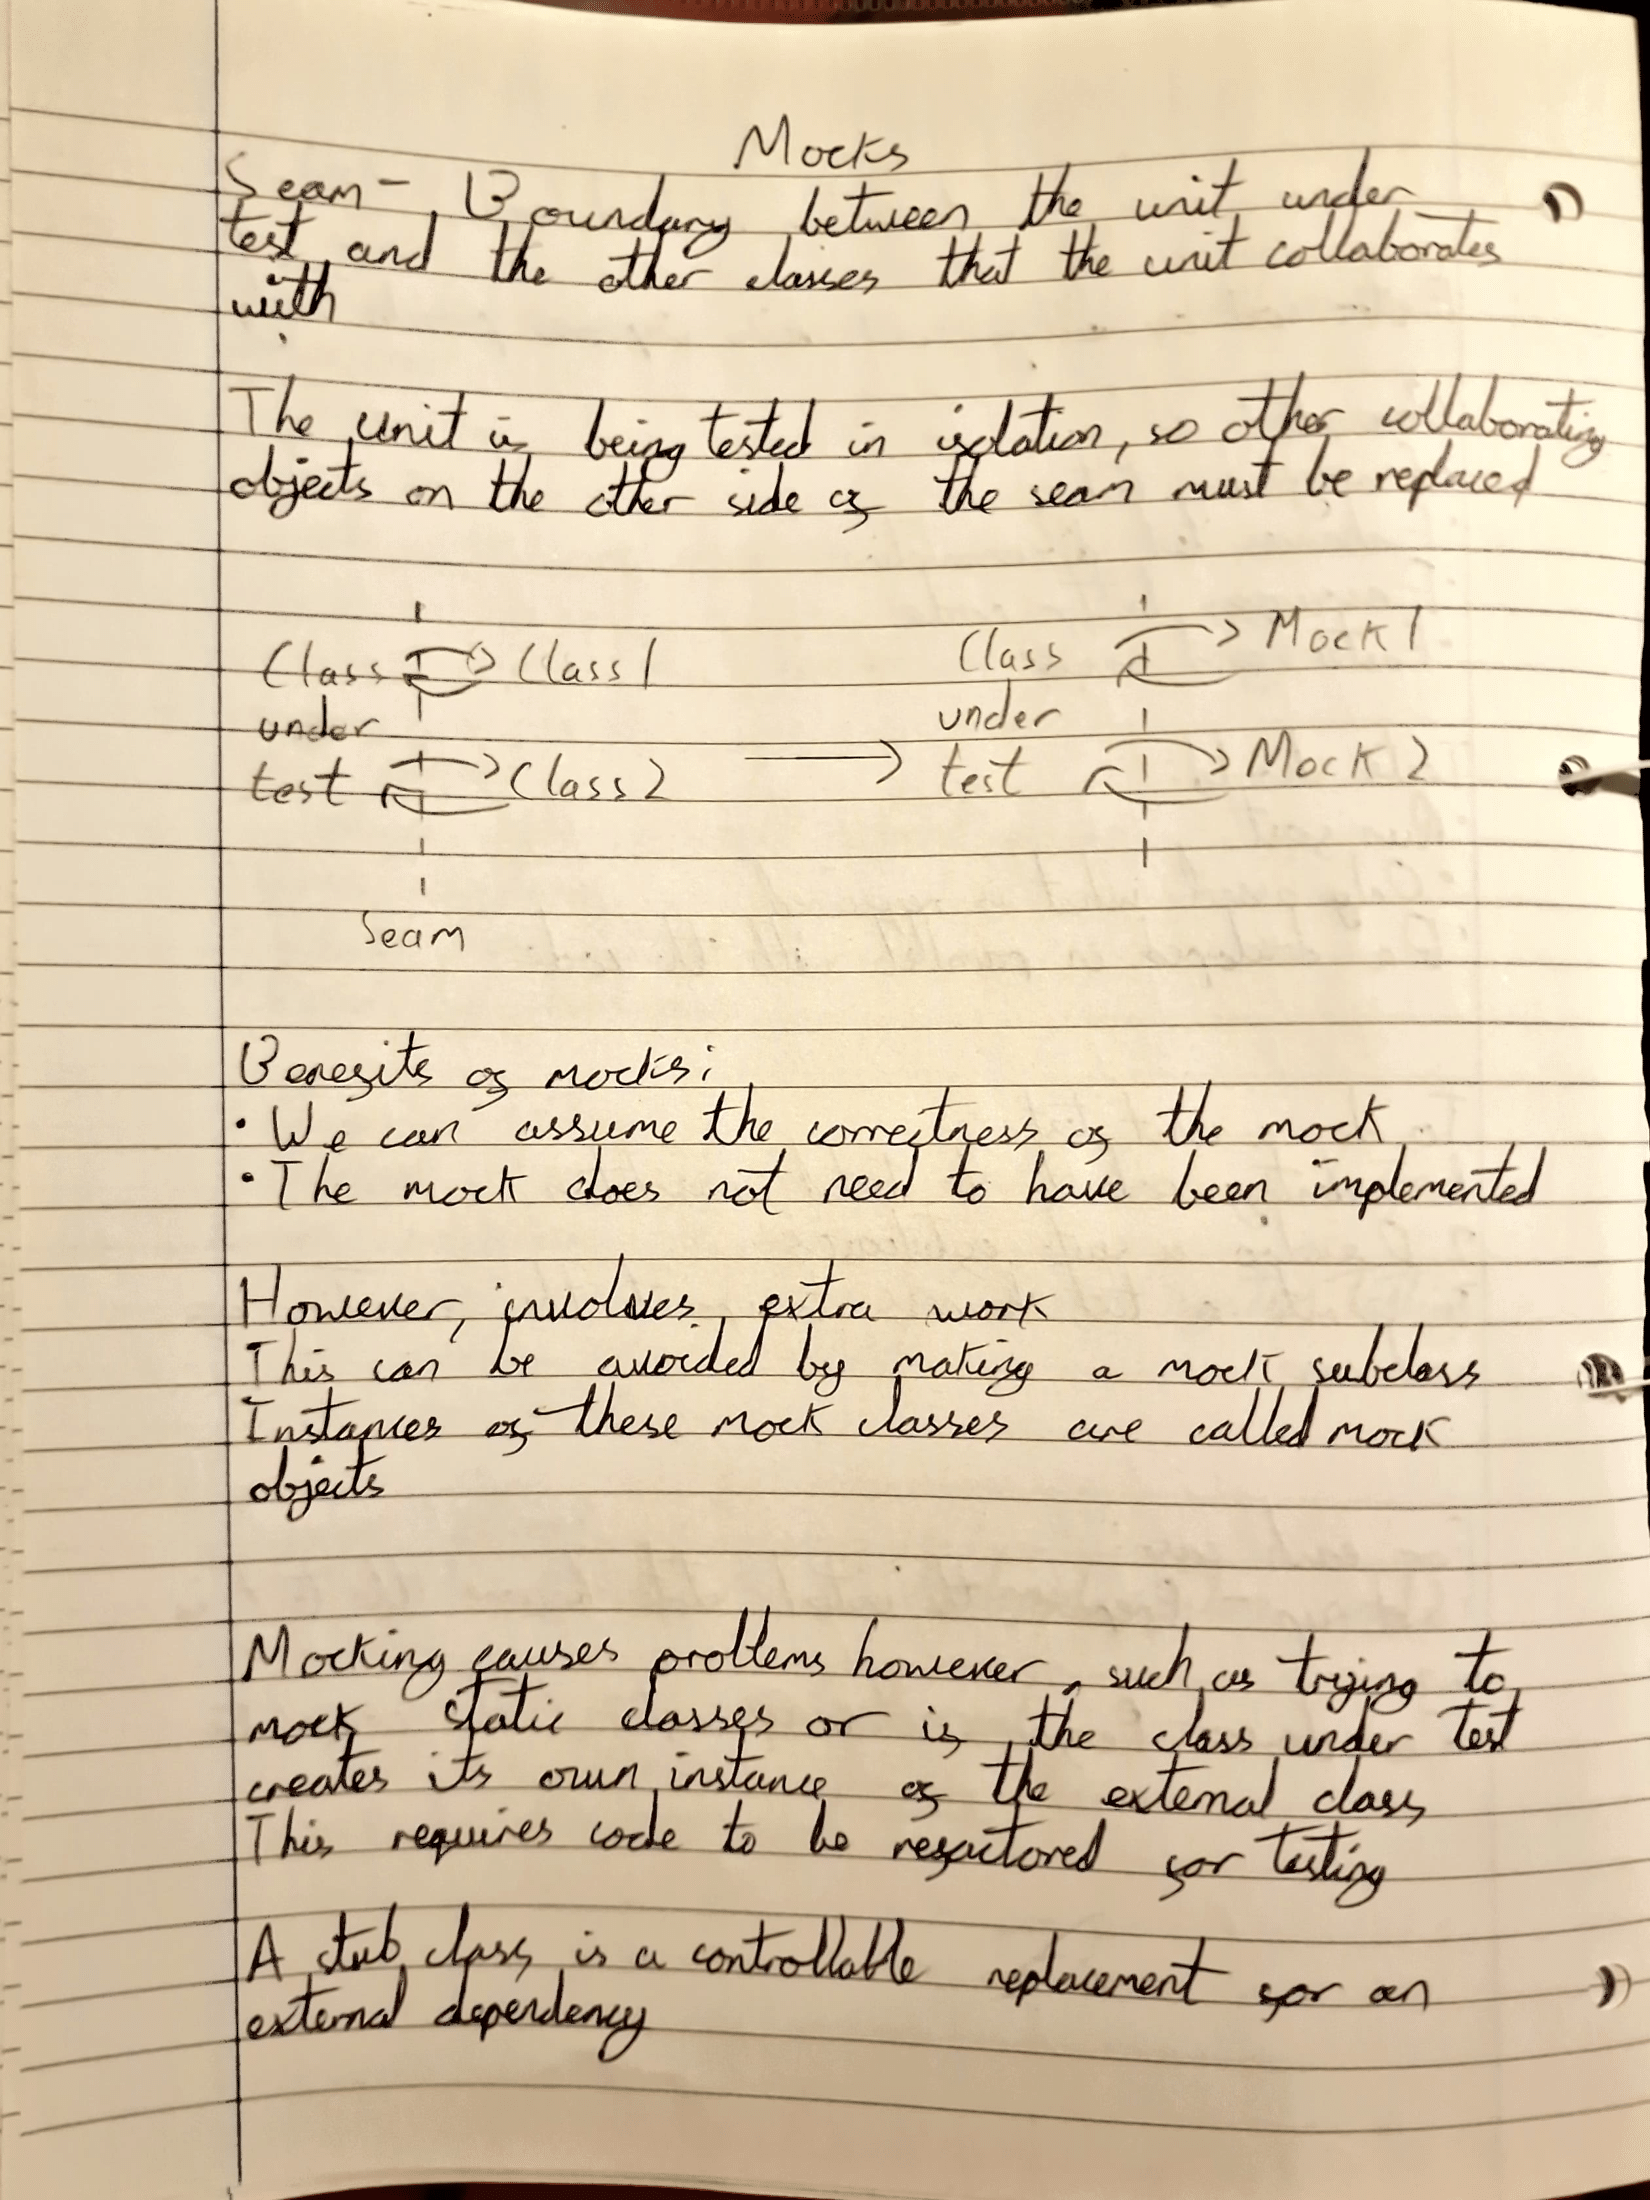 Mocks
Seam - Boundary between the unit under
test and the other classes that the unit collaborates
with
The unit is being tested in isolation, so other collaborating
objects on the other side of the seam must be replaced
Class Class 1 Class Mock 1
under under
test Class 2 test Mock 2
Seam
Benefits of mocks:
• We can assume the correctness of the mock
• The mock does not need to have been implemented
However, involves extra work
This can be avoided by making a mock subclass
Instances of these mock classes are called mock
objects
Mocking causes problems however, such as trying to
mock static classes or if the class under test
creates its own instance of the external class
This requires code to be refactored for testing
A stub class is a controllable replacement for an
external dependency